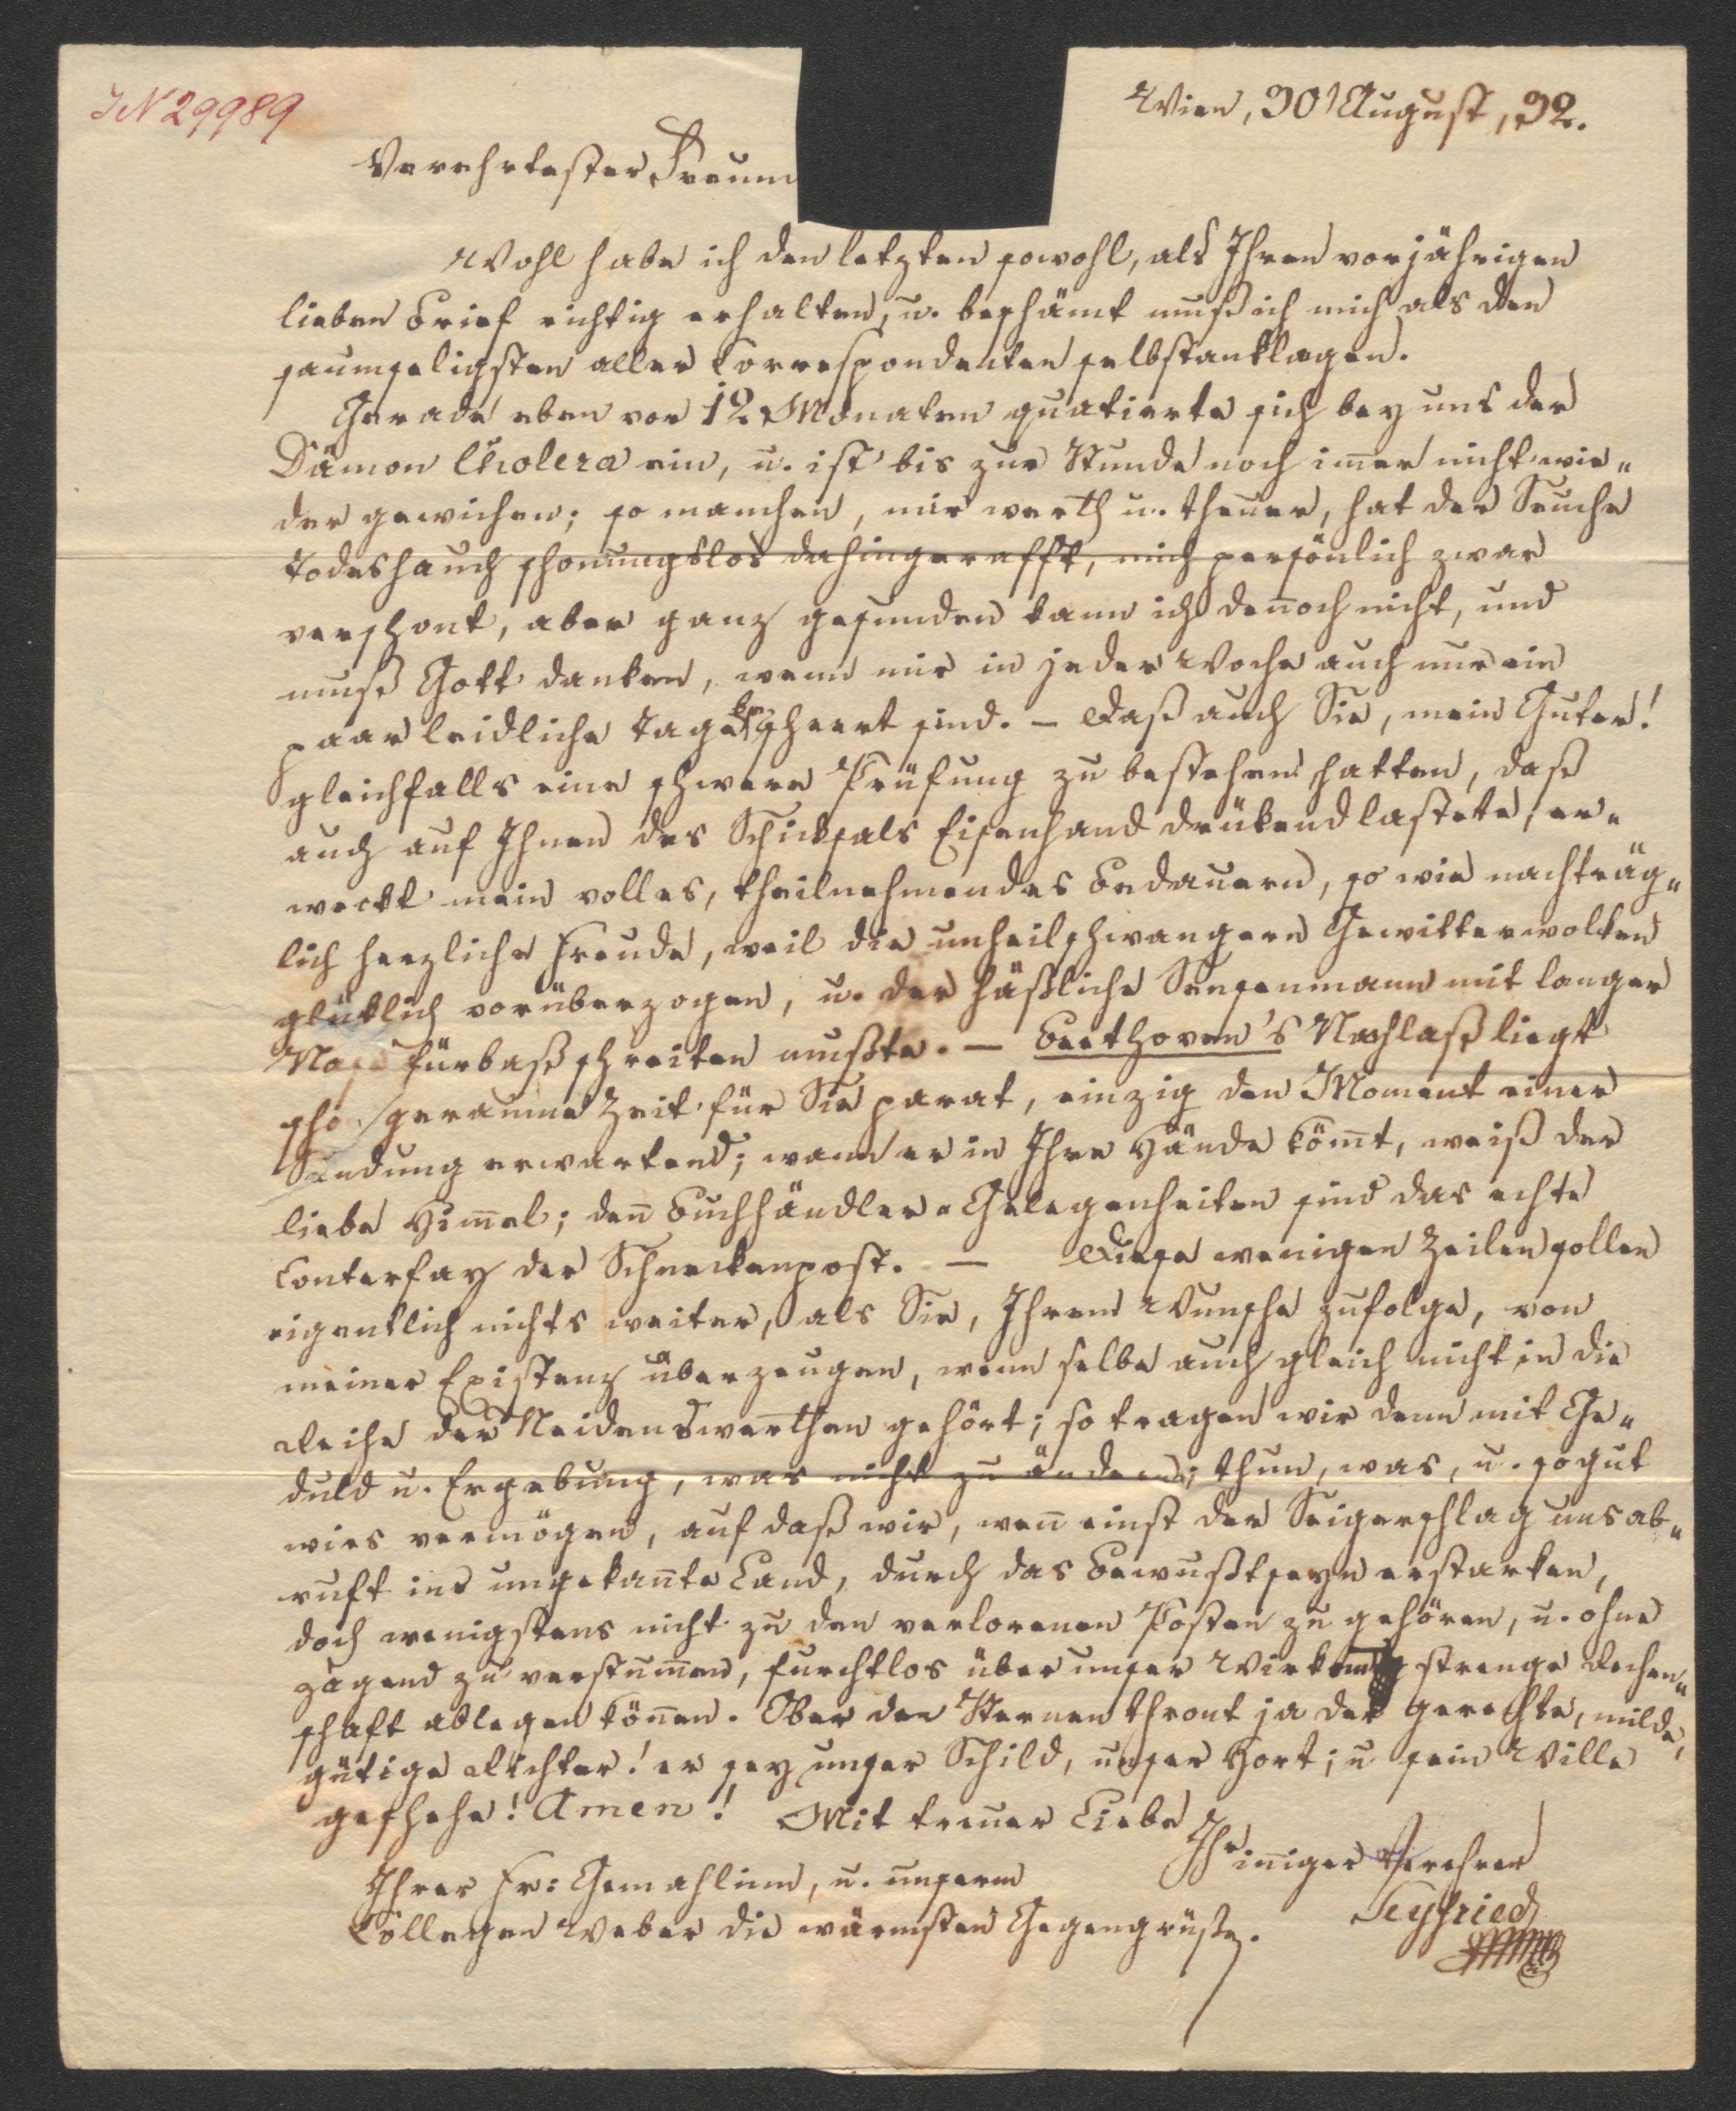 IN 29989
Wien, 30 August, 32.
Verehrtester Freun
Wohl habe ich den letzten sowohl, als Ihren vorjährigen
lieben Brief richtig erhalten, u. beschämt muß ich mich als den
saumseligsten aller Correspondenten selbstanklagen.
Gerade eben vor 12 Monaten quatierte sich bey uns der
Dämon Cholera ein, u. ist bis zur Stunde noch im̅er nicht wie„
der gewichen; so manchen, mir werth u. theuer, hat der Seuche
Todeshauch schonungslos dahingerafft, mich persönlich zwar
verschont, aber ganz gesunden kann ich den̅och nicht, und
muß Gott danken, wenn mir in jeder Woche auch nur ein
paar leidliche Tage bescheert sind. – Daß auch Sie, mein Guter!
gleichfalls eine schwere Prüfung zu bestehen hatten, daß
auch auf Ihnen des Schicksals Eisenhand drükend lastete, er„
weckt mein volles, theilnehmendes Bedauern, so wie nachträg„
lich herzliche Freude, weil die unheilschwangern Gewitterwolken
glüklich vorüberzogen, u. der häßliche Sensenmann mit langer
Nase fürbaß schreiten mußte. – Beethoven's Nachlaß liegt
scho geraume Zeit für Sie parat, einzig den Moment einer
Sendung erwartend; wann er in Ihre Hände köm̅t, weiß der
liebe Him̅el; den̅ Buchhändler-Gelegenheiten sind das echte
Conterfay der Schneckenpost. – Diese wenigen Zeilen sollen
eigentlich nichts weiter, als Sie, Ihrem Wunsche zufolge, von
meiner Existenz überzeugen, wenn selbe auch gleich nicht in die
Reihe der Neidenswerthen gehört; so tragen wir denn mit Ge„
duld u. Ergebung, was nicht zu ändern; thun, was, u. so gut
wirs vermögen, auf daß wir, wen̅ einst der Seigerschlag uns ab„
ruft ins ungekan̅te Land, durch das Bewußtseyn erstarken,
doch wenigstens nicht zu den verlorenen Posten zu gehören, u. ohne
zagend zu verstum̅en, furchtlos über unser Wirken strenge Rechen„
schaft ablegen kön̅en. Ober den Sternen thront ja der gerechte, milde,
gütige Richter! er sey unser Schild, unser Hort; u sein Wille
geschehe! Amen! Mit treuer Liebe
Ihr in̅iger Verehrer
Ihrer Fr: Gemahlinn, u. unserm
Seyfried
Collegen Weber die wärmsten Gegengrüße.